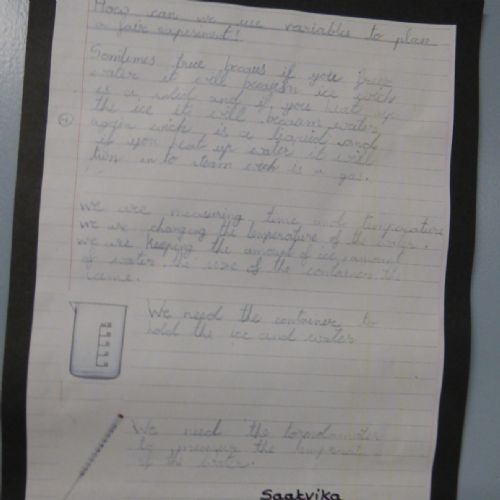 How can we use variables to plan
a fair experiment!
Somtimes
water it will becomn ice wich
is a solid and if you heat up
the ice it will becoam water
again wich is a liquid and
if you heat up water it will
turn in to steam wich is a gas.
we are measuring time and temperature
we are changing the temperature of the water.
we are keeping the amount of
of water the size of the containers the
same.
We need the container to
hold the ice and water
We need the
to measure the
of the water.
Saatvika